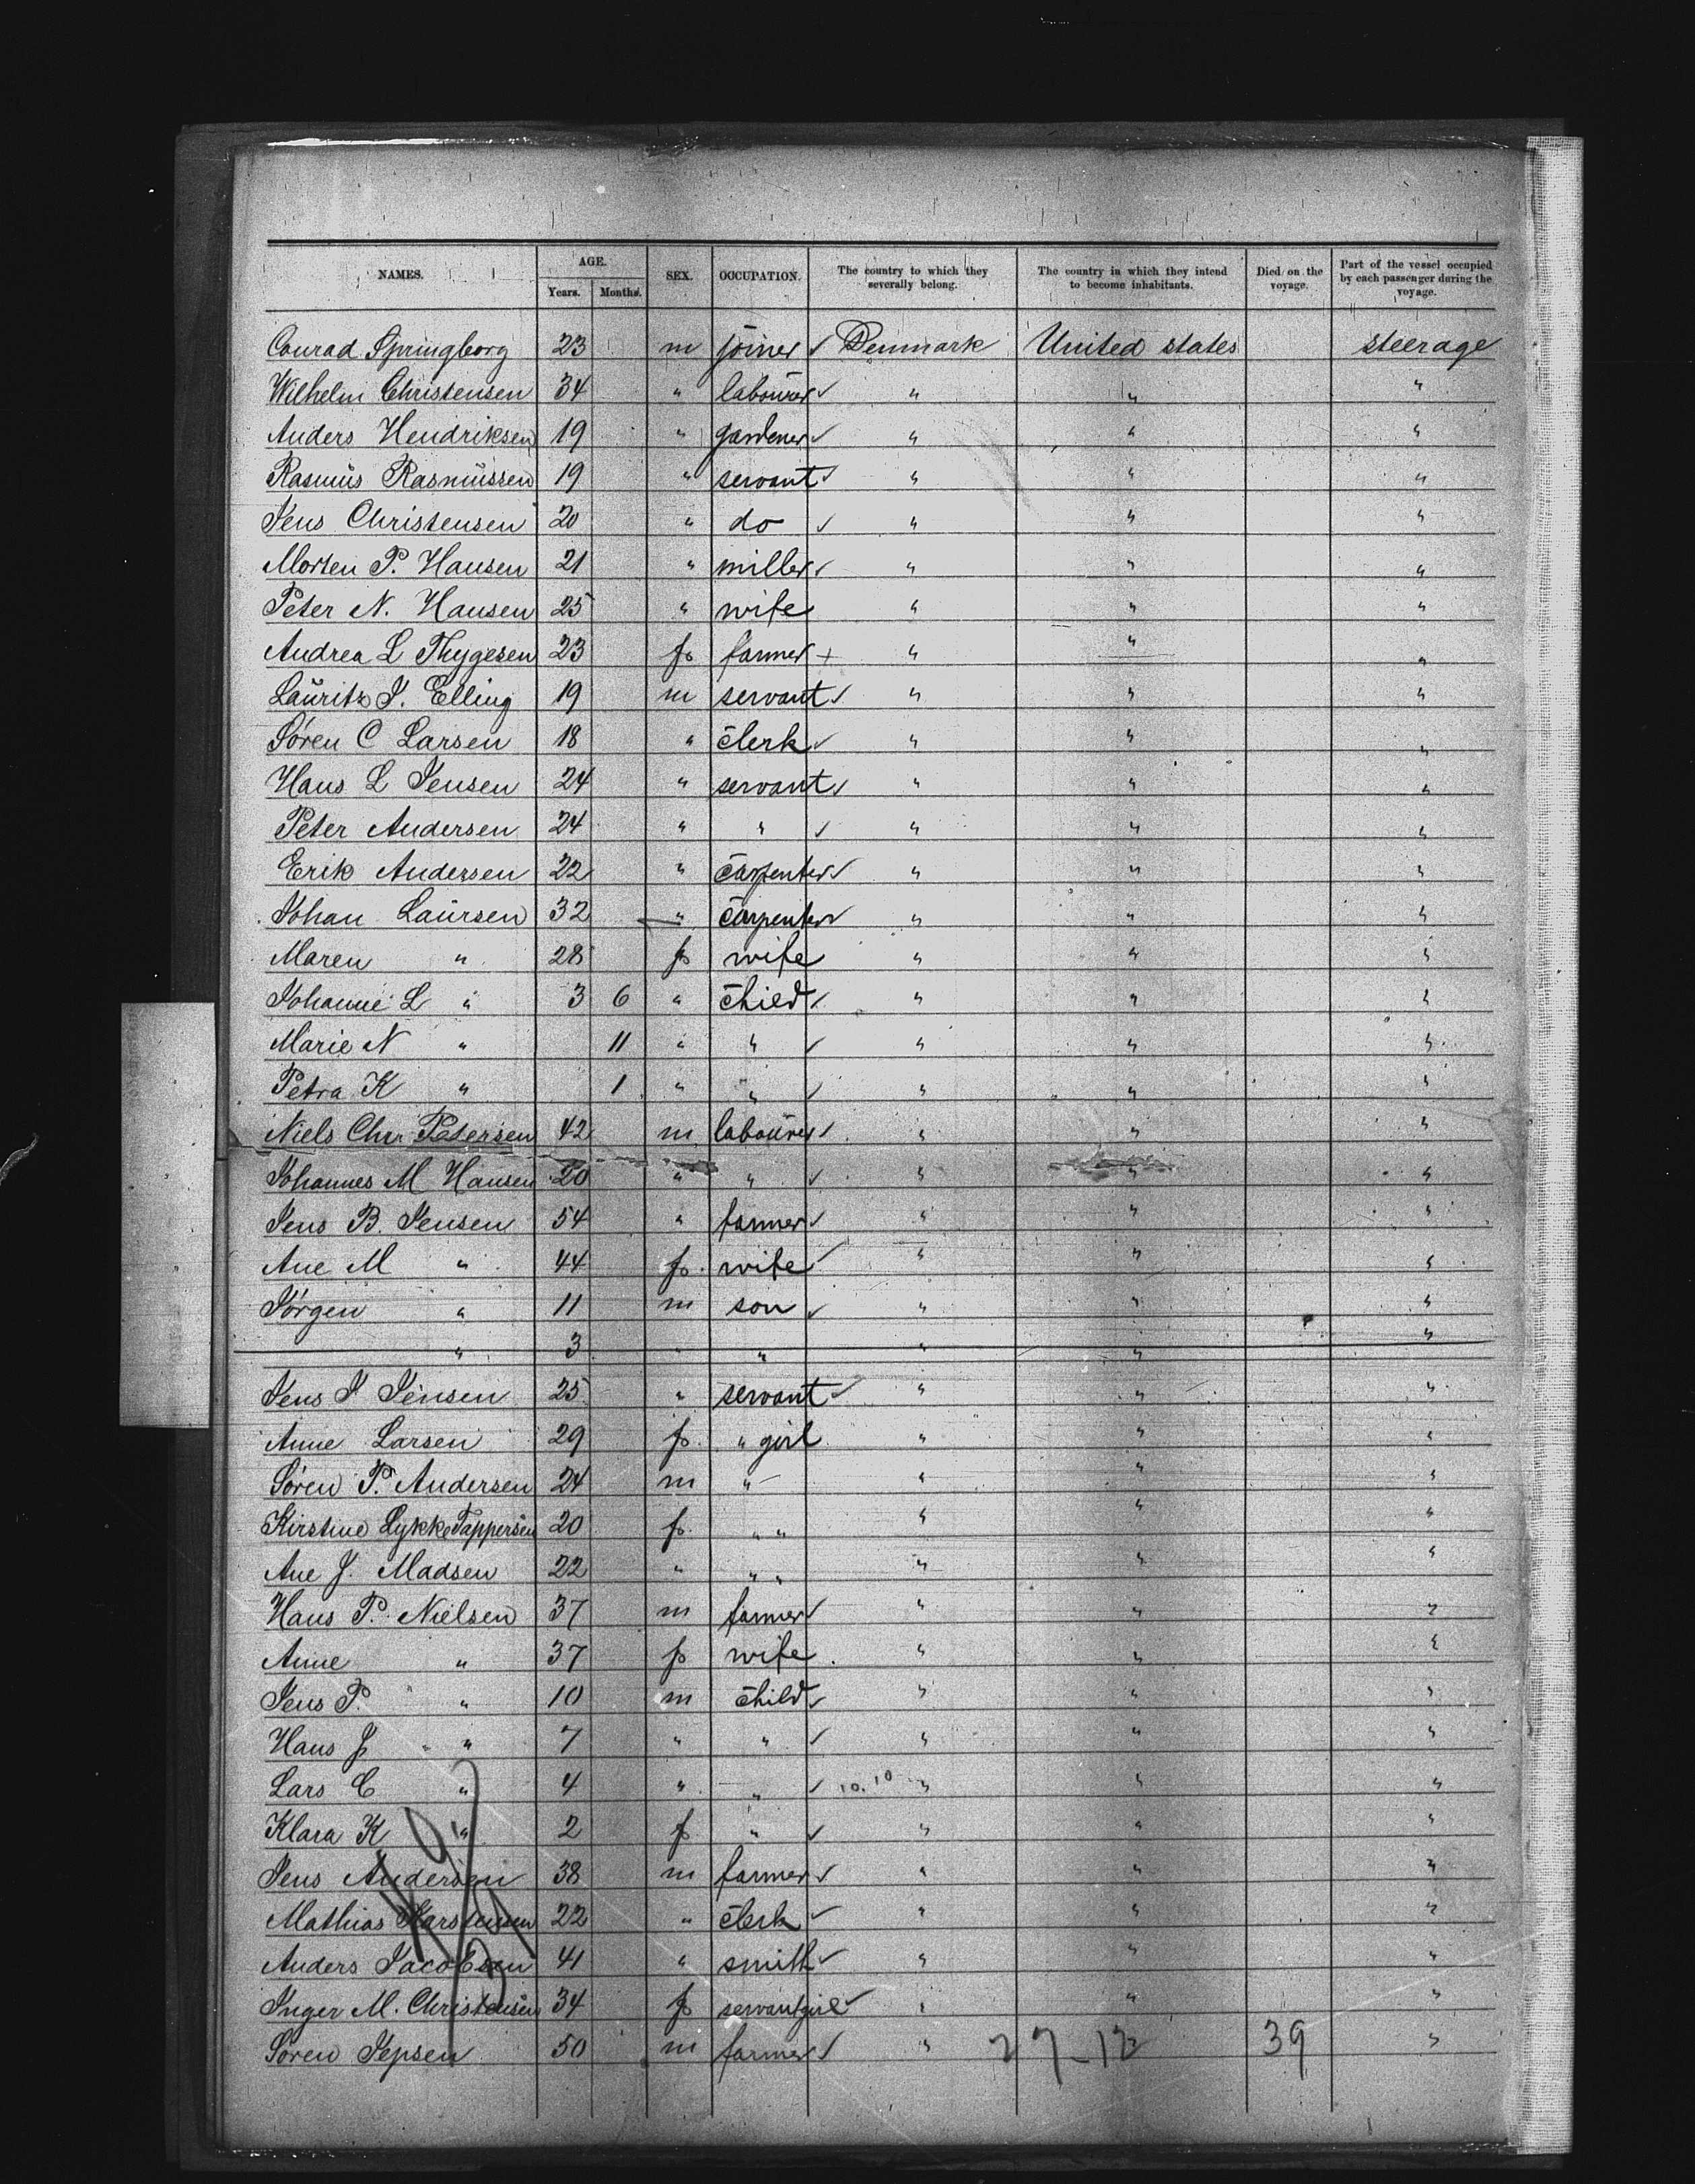 NAMES. AGE. SEX. OCCUPATION. The country to which they severally belong. The country in which they intend to become inhabitants. Died on the voyage. Part of the vessel occupied by each passenger during the voyage.
Years. Months.
Conrad Springborg 23 m joiner ✓ Denmark United states steerage
Wilhelm Christensen 34 " labourer ✓ " " "
Anders Hendriksen 19 " gardener ✓ " " "
Rasmus Rasmussen 19 " servant ✓ " " "
Jens Christensen 20 " do ✓ " " "
Morten P. Hansen 21 " miller ✓ " " "
Peter N. Hansen 25 " wife " " "
Andrea L Thygesen 23 f farmer + " " "
Lauritz J. Elling 19 m servant ✓ " " "
Søren C Larsen 18 " clerk ✓ " " "
Hans L Jensen 24 " servant ✓ " " "
Peter Andersen 24 " " ✓ " " "
Erik Andersen 22 " carpenter ✓ " " "
Johan Laursen 32 " carpenter ✓ " " "
Maren " 28 f wife " " "
Johanne L " 3 6 " child ✓ " " "
Marie N " 11 " " ✓ " " "
Petra K " 1 " " ✓ " " "
Niels Chr. Petersen 42 m labourer ✓ " " "
Johannes M Hansen 20 " " ✓ " " "
Jens B. Jensen 54 " farmer ✓ " " "
Ane M " 44 f. wife ✓ " " "
Jörgen " 11 m son ✓ " " "
" 3 " " " " "
Jens J Jensen 25 " servant ✓ " " "
Anne Larsen 29 f. " girl " " "
Søren P. Andersen 24 m " " " "
Kirstine Lykke Tappersen 20 f. " " " " "
Ane J. Madsen 22 " " " " " "
Hans P. Nielsen 37 m farmer ✓ " " "
Anne " 37 f wife " " "
Jens P. " 10 m child ✓ " " "
Hans J " 7 " " ✓ " " "
Lars C " 4 " " ✓ 10.10 " " "
Klara K " 2 f " ✓ " " "
Jens Andersen 38 m farmer ✓ " " "
Mathias Karstensen 22 " clerk ✓ " " "
Anders Jacobsen 41 " smith ✓ " " "
Inger M. Christensen 34 f servant girl ✓ " " "
Søren Jepsen 50 m farmer ✓ " 27-12 39 "